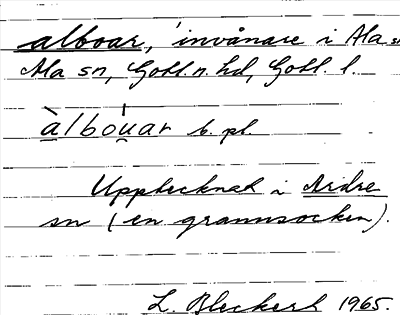 alboar, invånare i Ala sn
Ala sn, Gotl. n. hd, Gotl. l.
àlbou̲ar b. pl.
Upptecknat i Ardre
sn (en grannsocken).
L. Bleckert 1965.